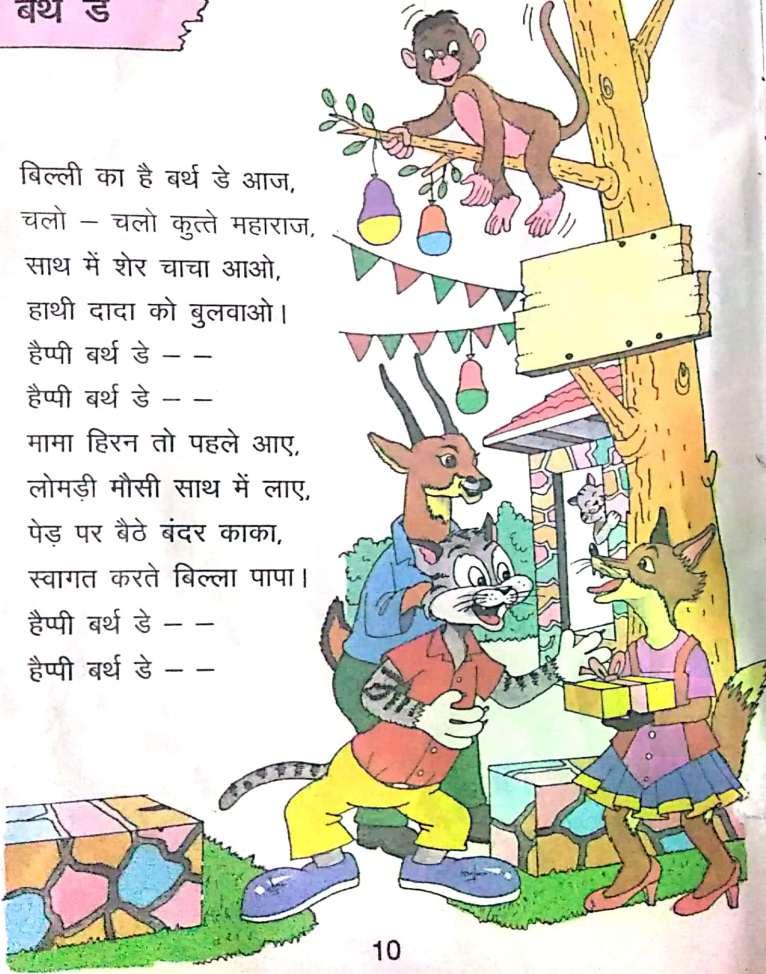 बर्थ डे
बिल्ली का है बर्थ डे आज,
चलो – चलो कुत्ते महाराज,
साथ में शेर चाचा आओ,
हाथी दादा को बुलवाओ।
हैप्पी बर्थ डे – –
हैप्पी बर्थ डे – –
मामा हिरन तो पहले आए,
लोमड़ी मौसी साथ में लाए,
पेड़ पर बैठे बंदर काका,
स्वागत करते बिल्ला पापा।
हैप्पी बर्थ डे – –
हैप्पी बर्थ डे – –
10